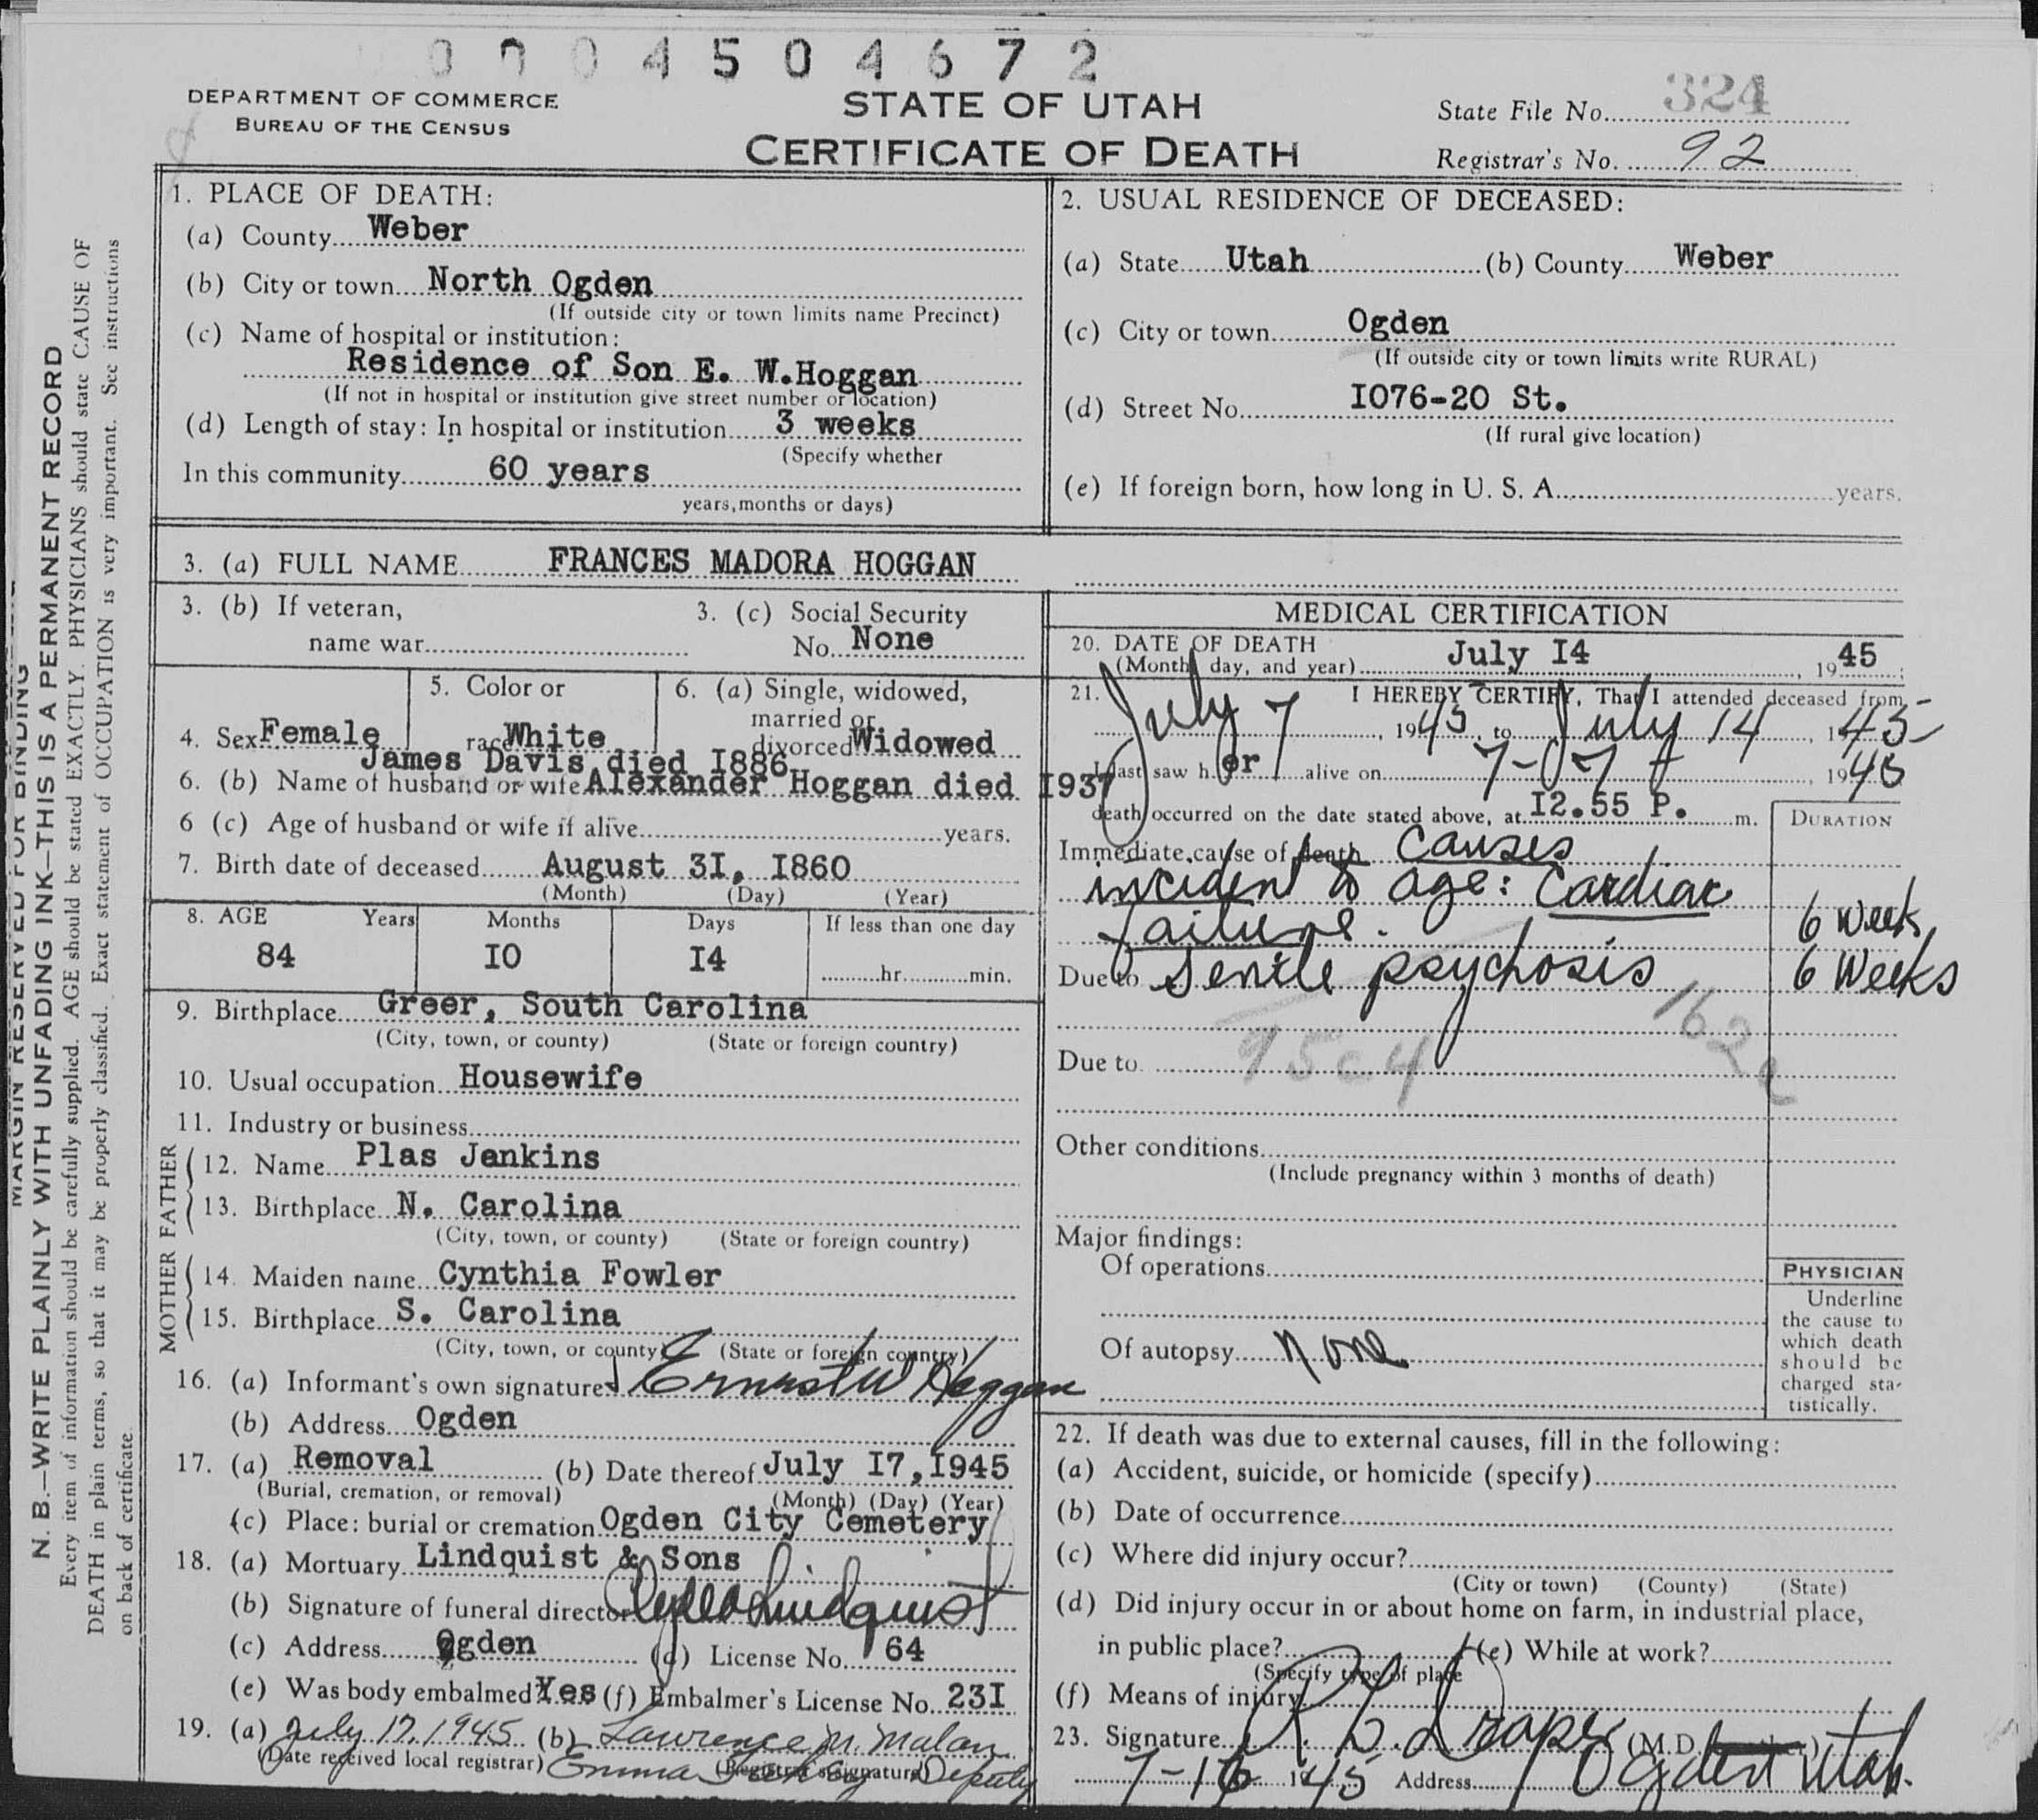 0004504672
DEPARTMENT OF COMMERCE
BUREAU OF THE CENSUS
STATE OF UTAH
CERTIFICATE OF DEATH
State File No. 324
Registrar's No. 92
MARGIN RESERVED FOR BINDING
N. B.—WRITE PLAINLY WITH UNFADING INK—THIS IS A PERMANENT RECORD
Every item of information should be carefully supplied. AGE should be stated EXACTLY. PHYSICIANS should state CAUSE OF
DEATH in plain terms, so that it may be properly classified. Exact statement of OCCUPATION is very important. See instructions
on back of certificate.
1. PLACE OF DEATH:
(a) County Weber
(b) City or town North Ogden
(If outside city or town limits name Precinct)
(c) Name of hospital or institution:
Residence of Son E. W.Hoggan
(If not in hospital or institution give street number or location)
(d) Length of stay: In hospital or institution 3 weeks
(Specify whether
In this community 60 years
years, months or days)
2. USUAL RESIDENCE OF DECEASED:
(a) State Utah (b) County Weber
(c) City or town Ogden
(If outside city or town limits write RURAL)
(d) Street No. I076-20 St.
(If rural give location)
(e) If foreign born, how long in U. S. A. years.
3. (a) FULL NAME FRANCES MADORA HOGGAN
3. (b) If veteran,
name war
3. (c) Social Security
No. None
4. Sex Female
5. Color or
race White
6. (a) Single, widowed,
married or
divorced Widowed
James Davis died I886
6. (b) Name of husband or wife Alexander Hoggan died I937
6 (c) Age of husband or wife if alive years.
7. Birth date of deceased August 3I, I860
(Month) (Day) (Year)
8. AGE Years Months Days If less than one day
84 I0 I4 hr. min.
9. Birthplace Greer, South Carolina
(City, town, or county) (State or foreign country)
10. Usual occupation Housewife
11. Industry or business
FATHER
12. Name Plas Jenkins
13. Birthplace N. Carolina
(City, town, or county) (State or foreign country)
MOTHER
14. Maiden name Cynthia Fowler
15. Birthplace S. Carolina
(City, town, or county) (State or foreign country)
16. (a) Informant's own signature Ernest W Hoggan
(b) Address Ogden
17. (a) Removal (b) Date thereof July I7,I945
(Burial, cremation, or removal) (Month) (Day) (Year)
(c) Place: burial or cremation Ogden City Cemetery
18. (a) Mortuary Lindquist & Sons
(b) Signature of funeral director Lindquist
(c) Address Ogden (d) License No. 64
(e) Was body embalmed Yes (f) Embalmer's License No. 23I
19. (a) July 17, 1945 (b) Lawrence M. Malan
(Date received local registrar) (Registrar's signature)
Emma Deputy
MEDICAL CERTIFICATION
20. DATE OF DEATH
(Month, day, and year) July I4, 1945
21. I HEREBY CERTIFY, That I attended deceased from
July 7, 1945, to July 14, 1945
I last saw her alive on 1945
death occurred on the date stated above, at I2.55 P. m.
DURATION
Immediate cause of death Causes
incident to age: Cardiac
failure. 6 weeks
Due to Senile psychosis 6 Weeks
162a
Due to 95c4
Other conditions
(Include pregnancy within 3 months of death)
Major findings:
Of operations
Of autopsy none
PHYSICIAN
Underline
the cause to
which death
should be
charged sta-
tistically.
22. If death was due to external causes, fill in the following:
(a) Accident, suicide, or homicide (specify)
(b) Date of occurrence
(c) Where did injury occur?
(City or town) (County) (State)
(d) Did injury occur in or about home on farm, in industrial place,
in public place? (e) While at work?
(Specify type of place
(f) Means of injury
23. Signature Draper (M.D.
7-16 1945 Address Ogden Utah.